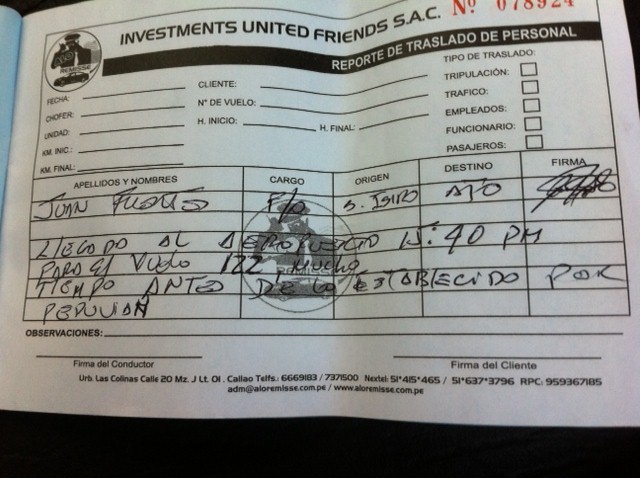 INVESTMENTS UNITED FRIENDS S.A.C. Nº 078924
REPORTE DE TRASLADO DE PERSONAL
REMISSE
FECHA:
CHOFER:
UNIDAD:
KM. INIC.:
KM. FINAL:
CLIENTE:
N° DE VUELO:
H. INICIO: H. FINAL:
TIPO DE TRASLADO:
TRIPULACIÓN:
TRAFICO:
EMPLEADOS:
FUNCIONARIO:
PASAJEROS:
APELLIDOS Y NOMBRES CARGO ORIGEN DESTINO FIRMA
JUAN FUENTES F/O S. ISIRO
LLEGADO AL AEROPUERTO :40 PM
PARA EL VUELO 122 MUCHO
TIEMPO ANTES DE LO ESTABLECIDO POR
PERUVIAN
OBSERVACIONES:
Firma del Conductor Firma del Cliente
Urb. Las Colinas Calle 20 Mz. J Lt. 01 . Callao Telfs.: 6669183 / 7371500 Nextel: 51*415*465 / 51*637*3796 RPC: 959367185
adm@aloremisse.com.pe / www.aloremisse.com.pe